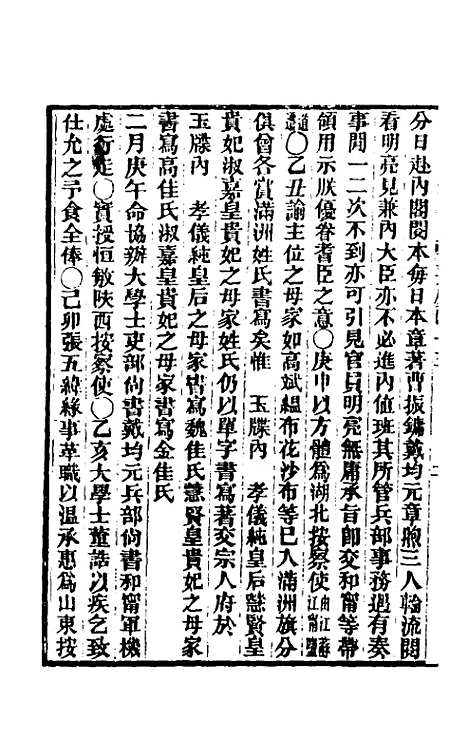 分日赴內閣閱本每日本章著曹振鏞戴均元章煦三人輪流閱
看明亮見兼內大臣亦不必進內值班其所管兵部事務遇有奏
事間一二次不到亦可引見官員明亮無庸承旨卽交和甯等帶
領用示朕優眷耆臣之意○庚申以方體爲湖北按察使由江蘇江甯鹽
道遷○乙丑諭主位之母家如高斌縕布花沙布等已入滿洲旗分
俱曾各賞滿洲姓氏書寫矣惟　玉牒內　孝儀純皇后慧賢皇
貴妃淑嘉皇貴妃之母家姓氏仍以單字書寫著交宗人府於
玉牒內　孝儀純皇后之母家書寫魏佳氏慧賢皇貴妃之母家
書寫高佳氏淑嘉皇貴妃之母家書寫金佳氏
二月庚午命協辦大學士吏部尙書戴均元兵部尙書和甯軍機
處行走○實授恒敏陝西按察使○乙亥大學士董誥以疾乞致
仕允之予食全俸○己卯張五緯緣事革職以溫承惠爲山東按